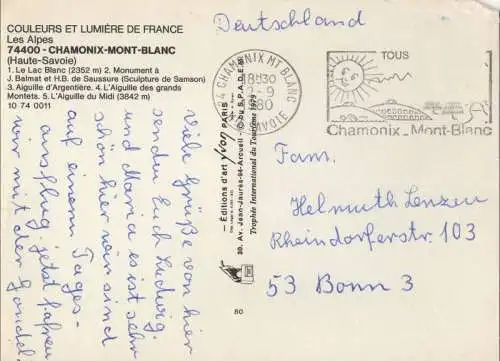 COULEURS ET LUMIÈRE DE FRANCE
Les Alpes
74400 - CHAMONIX-MONT-BLANC
(Haute-Savoie)
1. Le Lac Blanc (2352 m) 2. Monument à
J. Balmat et H.B. de Saussure (Sculpture de Samson)
3. Aiguille d'Argentière. 4. L'Aiguille des grands
Montets. 5. L'Aiguille du Midi (3842 m)
10 74 0011
Deutschland
74 CHAMONIX MT BLANC
18H30
-9
1980
SAVOIE
TOUS
Chamonix-Mont-Blanc
Viele Grüße von hier
senden Euch Ludwig
und Maria es ist sehr
schön hier wir sind
auf einem Tages-
ausflug jetzt fahren
wir mit der Gondel.
— Éditions d'art yvon PARIS
30, Av. Jean-Jaurès-94-Arcueil - © by S.P.A.D.E.M.
Trophée International du Tourisme 1979
80
Fam.
Helmuth Lenzen
Rheindorferstr. 103
53 Bonn 3